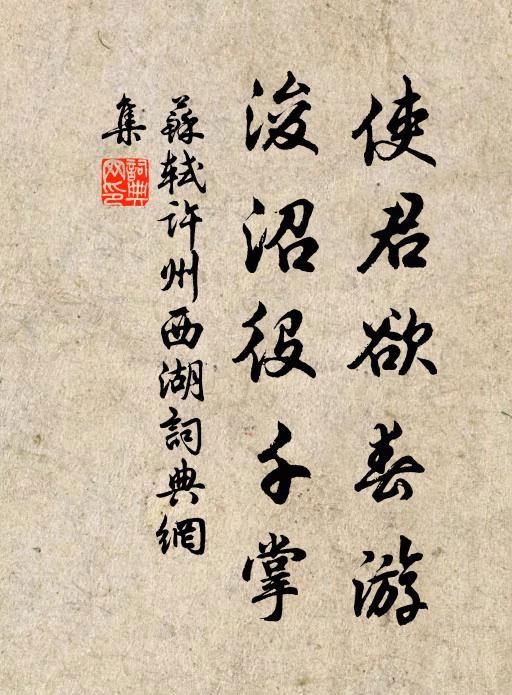 使君欲春游
浚沼役千掌
蘇軾許州西湖詞典網
集
詞典網印